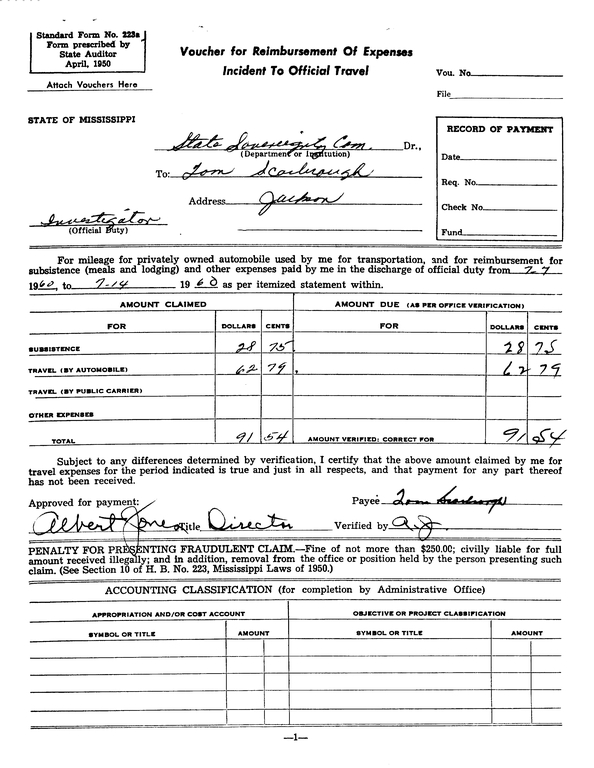 Standard Form No. 223a
Form prescribed by
State Auditor
April, 1950
Attach Vouchers Here
Voucher for Reimbursement Of Expenses
Incident To Official Travel
Vou. No.
File
STATE OF MISSISSIPPI
State Sovereignty Com. Dr.,
(Department or Institution)
To: Tom Scarbrough
Address Jackson
Investigator
(Official Duty)
RECORD OF PAYMENT
Date
Req. No.
Check No.
Fund
For mileage for privately owned automobile used by me for transportation, and for reimbursement for
subsistence (meals and lodging) and other expenses paid by me in the discharge of official duty from 7-7
1960, to 7-14 1960 as per itemized statement within.
AMOUNT CLAIMED AMOUNT DUE (AS PER OFFICE VERIFICATION)
FOR DOLLARS CENTS FOR DOLLARS CENTS
SUBSISTENCE 28 75 28 75
TRAVEL (BY AUTOMOBILE) 62 79 62 79
TRAVEL (BY PUBLIC CARRIER)
OTHER EXPENSES
TOTAL 91 54 AMOUNT VERIFIED: CORRECT FOR 91 54
Subject to any differences determined by verification, I certify that the above amount claimed by me for
travel expenses for the period indicated is true and just in all respects, and that payment for any part thereof
has not been received.
Approved for payment: Payee Tom Scarbrough
Albert Jones Title Director Verified by A.J.
PENALTY FOR PRESENTING FRAUDULENT CLAIM.—Fine of not more than $250.00; civilly liable for full
amount received illegally; and in addition, removal from the office or position held by the person presenting such
claim. (See Section 10 of H. B. No. 223, Mississippi Laws of 1950.)
ACCOUNTING CLASSIFICATION (for completion by Administrative Office)
APPROPRIATION AND/OR COST ACCOUNT OBJECTIVE OR PROJECT CLASSIFICATION
SYMBOL OR TITLE AMOUNT SYMBOL OR TITLE AMOUNT
—1—